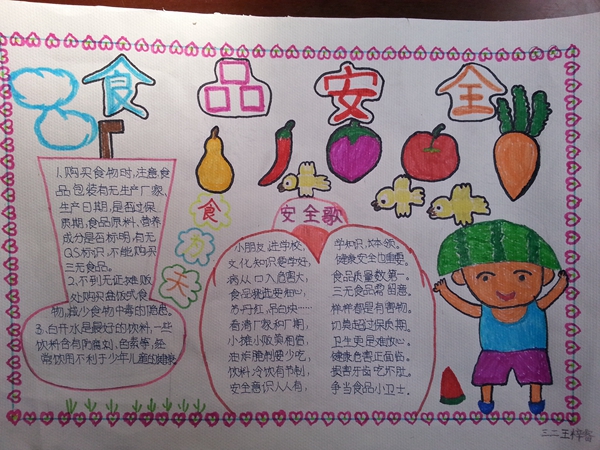 食品安全
1.购买食物时,注意食
品包装有无生产厂家、
生产日期,是否过保
质期,食品原料、营养
成分是否标明,有无
QS标识,不能购买
三无食品。
2.不到无证摊贩
处购买盒饭或食
物,减少食物中毒的隐患。
3.白开水是最好的饮料,一些
饮料含有防腐剂、色素等,经
常饮用不利于少年儿童的健康
食
天
安全歌
小朋友,进学校,
文化知识要学好,
病从口入危害大,
苏丹红,吊白块……
看清厂家和厂期,
小摊小贩莫相信,
油炸腌制要少吃,
饮料冷饮有节制,
安全意识人人有,
学知识,
健康安全
食品质量数第一。
三无食品
样样都是有害物。
切莫超过保质期。
卫生更是难放心。
健康危害正面临。
损害牙齿吃坏肚。
争当食品小卫士。
三二王梓